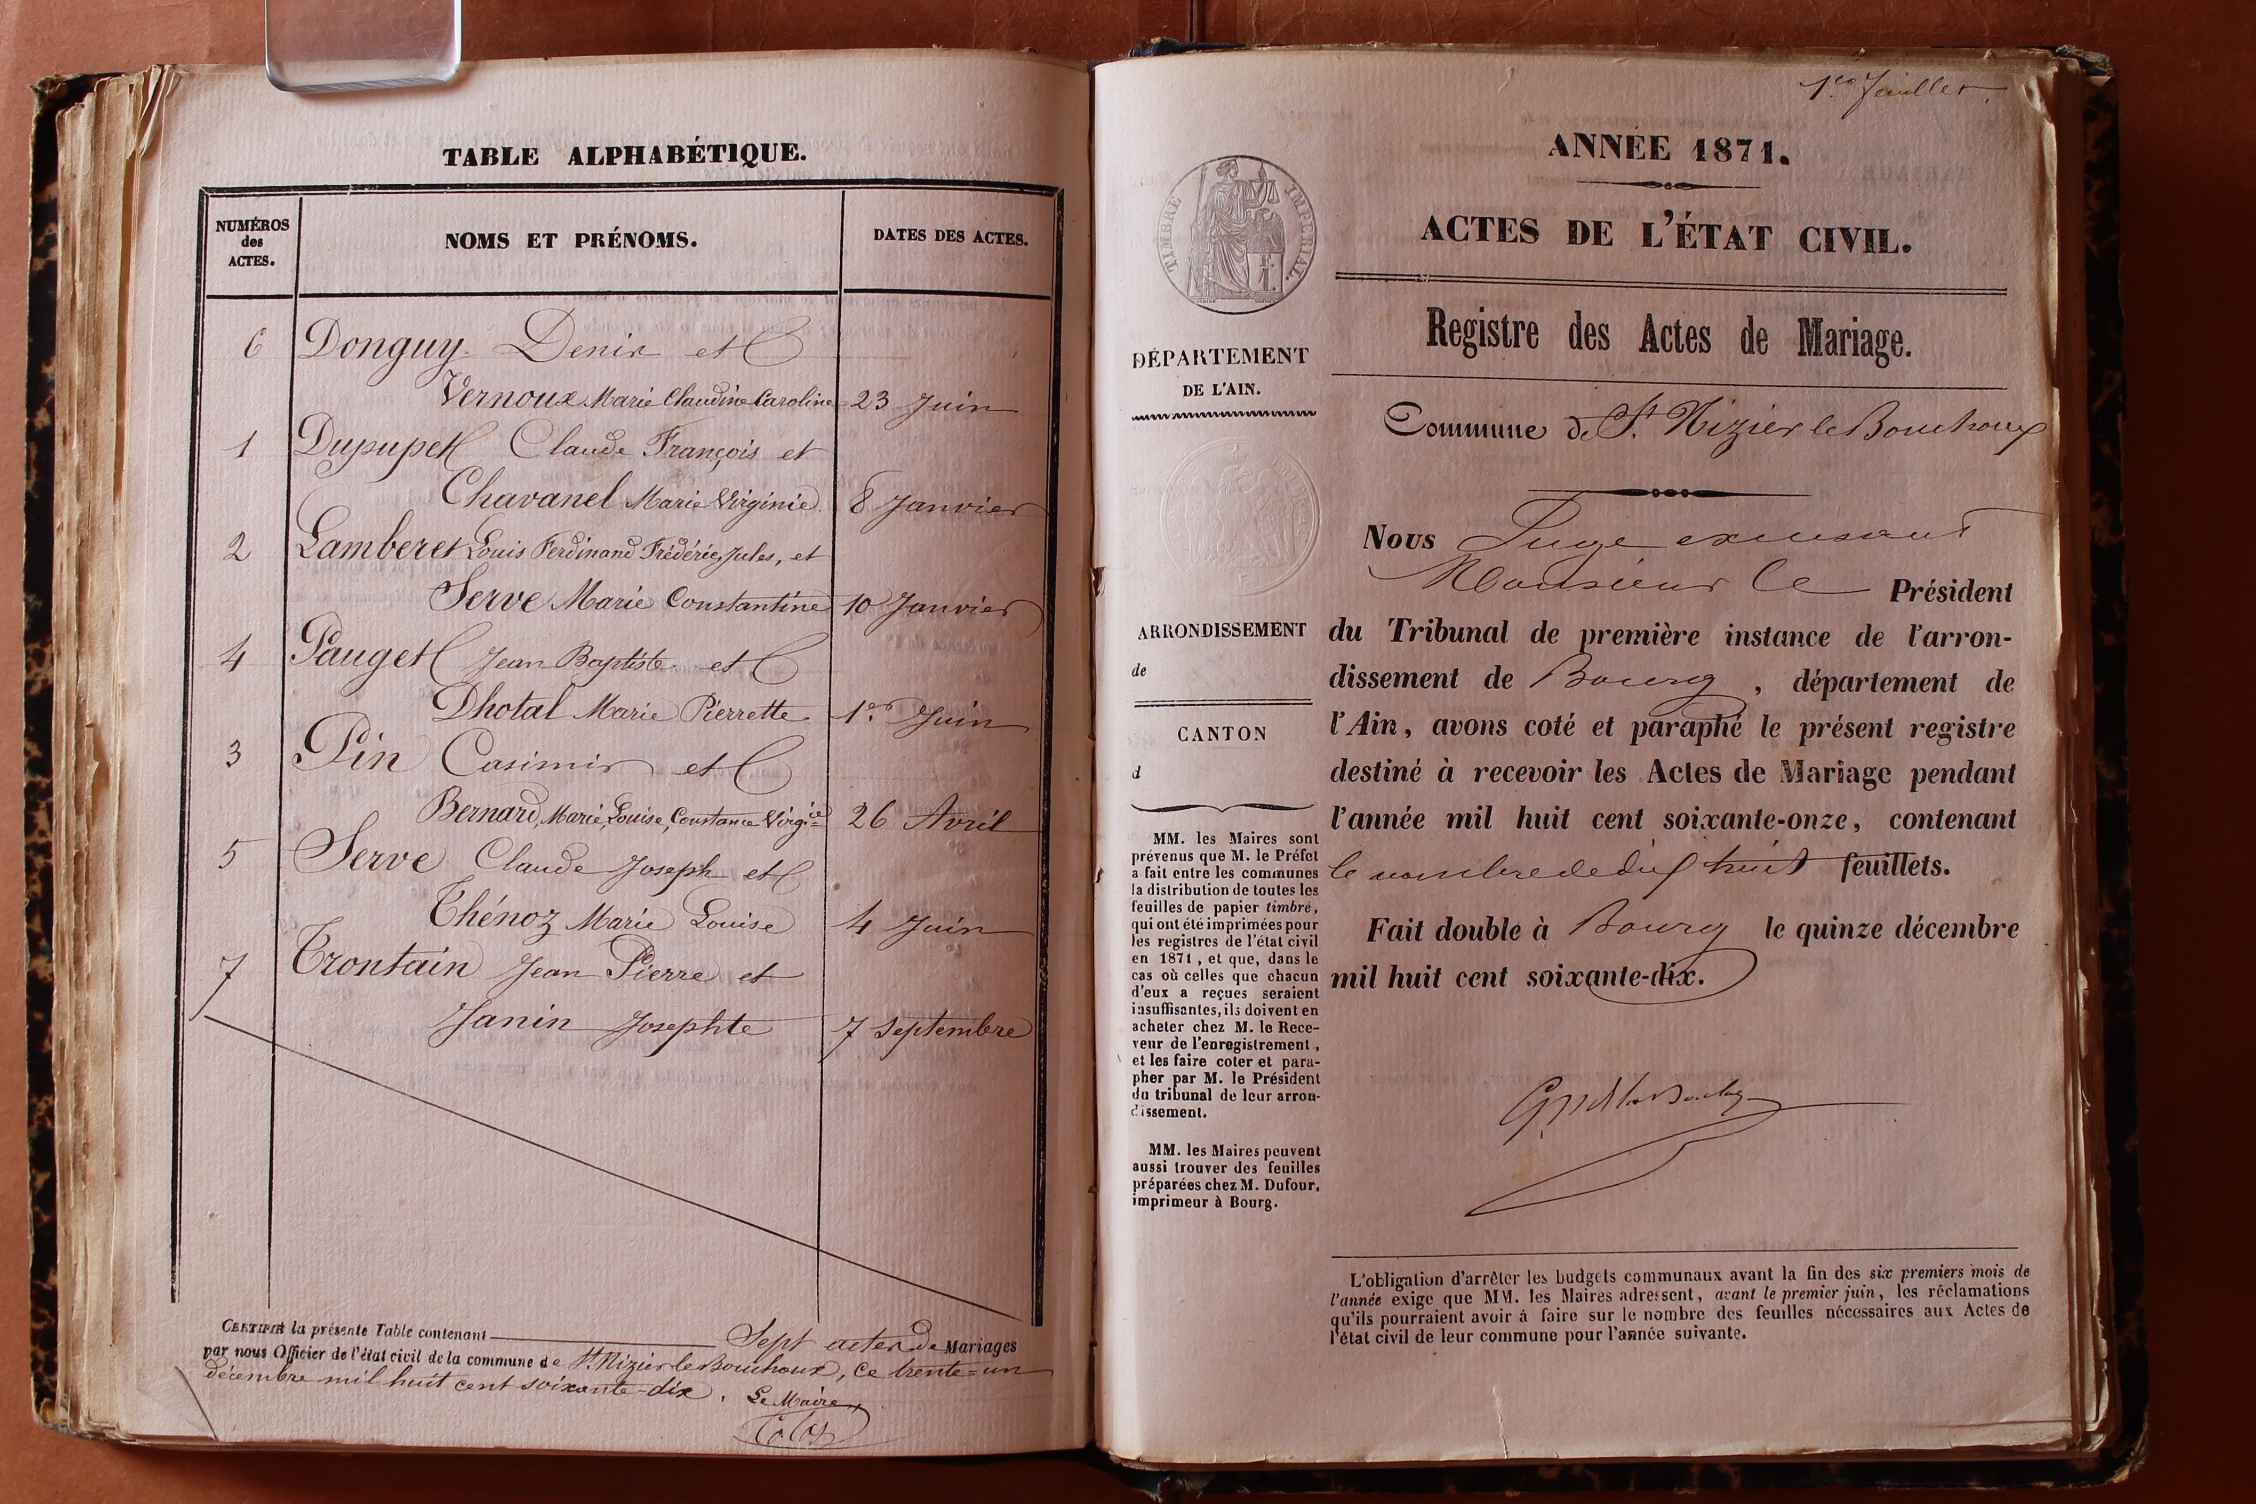 TABLE ALPHABÉTIQUE.
NUMÉROS
des
ACTES.
NOMS ET PRÉNOMS.
DATES DES ACTES.
6 Donguy Denis et
Vernoux Marie Claudine Caroline 23 Juin
1 Dupupet Claude François et
Chavanel Marie Virginie 8 Janvier
2 Lamberet Louis Ferdinand Frédéric, Jules, et
Serve Marie Constantine 10 Janvier
4 Pauget Jean Baptiste et
Dhotal Marie Pierrette 1er Juin
3 Pin Casimir et
Bernard, Marie, Louise, Constance Virgie 26 Avril
5 Serve Claude Joseph et
Thénoz Marie Louise 4 Juin
7 Trontain Jean Pierre et
Janin Josephte 7 Septembre
CERTIFIÉ la présente Table contenant Sept actes de Mariages
par nous Officier de l'état civil de la commune de St. Nizier le Bouchoux, ce trente=un
décembre mil huit cent soixante-dix. Le Maire,
1er feuillet.
ANNÉE 1871.
ACTES DE L'ÉTAT CIVIL.
Registre des Actes de Mariage.
TIMBRE IMPÉRIAL.
DÉPARTEMENT
DE L'AIN.
Commune de St. Nizier le Bouchoux
Nous Juge excusant
Monsieur le Président
du Tribunal de première instance de l'arron-
dissement de Bourg, département de
l'Ain, avons coté et paraphé le présent registre
destiné à recevoir les Actes de Mariage pendant
l'année mil huit cent soixante-onze, contenant
le nombre de dix huit feuillets.
Fait double à Bourg le quinze décembre
mil huit cent soixante-dix.
ARRONDISSEMENT
de
CANTON
d
MM. les Maires sont
prévenus que M. le Préfet
a fait entre les communes
la distribution de toutes les
feuilles de papier timbré,
qui ont été imprimées pour
les registres de l'état civil
en 1871, et que, dans le
cas où celles que chacun
d'eux a reçues seraient
insuffisantes, ils doivent en
acheter chez M. le Rece-
veur de l'enregistrement,
et les faire coter et para-
pher par M. le Président
du tribunal de leur arron-
dissement.
MM. les Maires peuvent
aussi trouver des feuilles
préparées chez M. Dufour,
imprimeur à Bourg.
L'obligation d'arrêter les budgets communaux avant la fin des six premiers mois de
l'année exige que MM. les Maires adressent, avant le premier juin, les réclamations
qu'ils pourraient avoir à faire sur le nombre des feuilles nécessaires aux Actes de
l'état civil de leur commune pour l'année suivante.